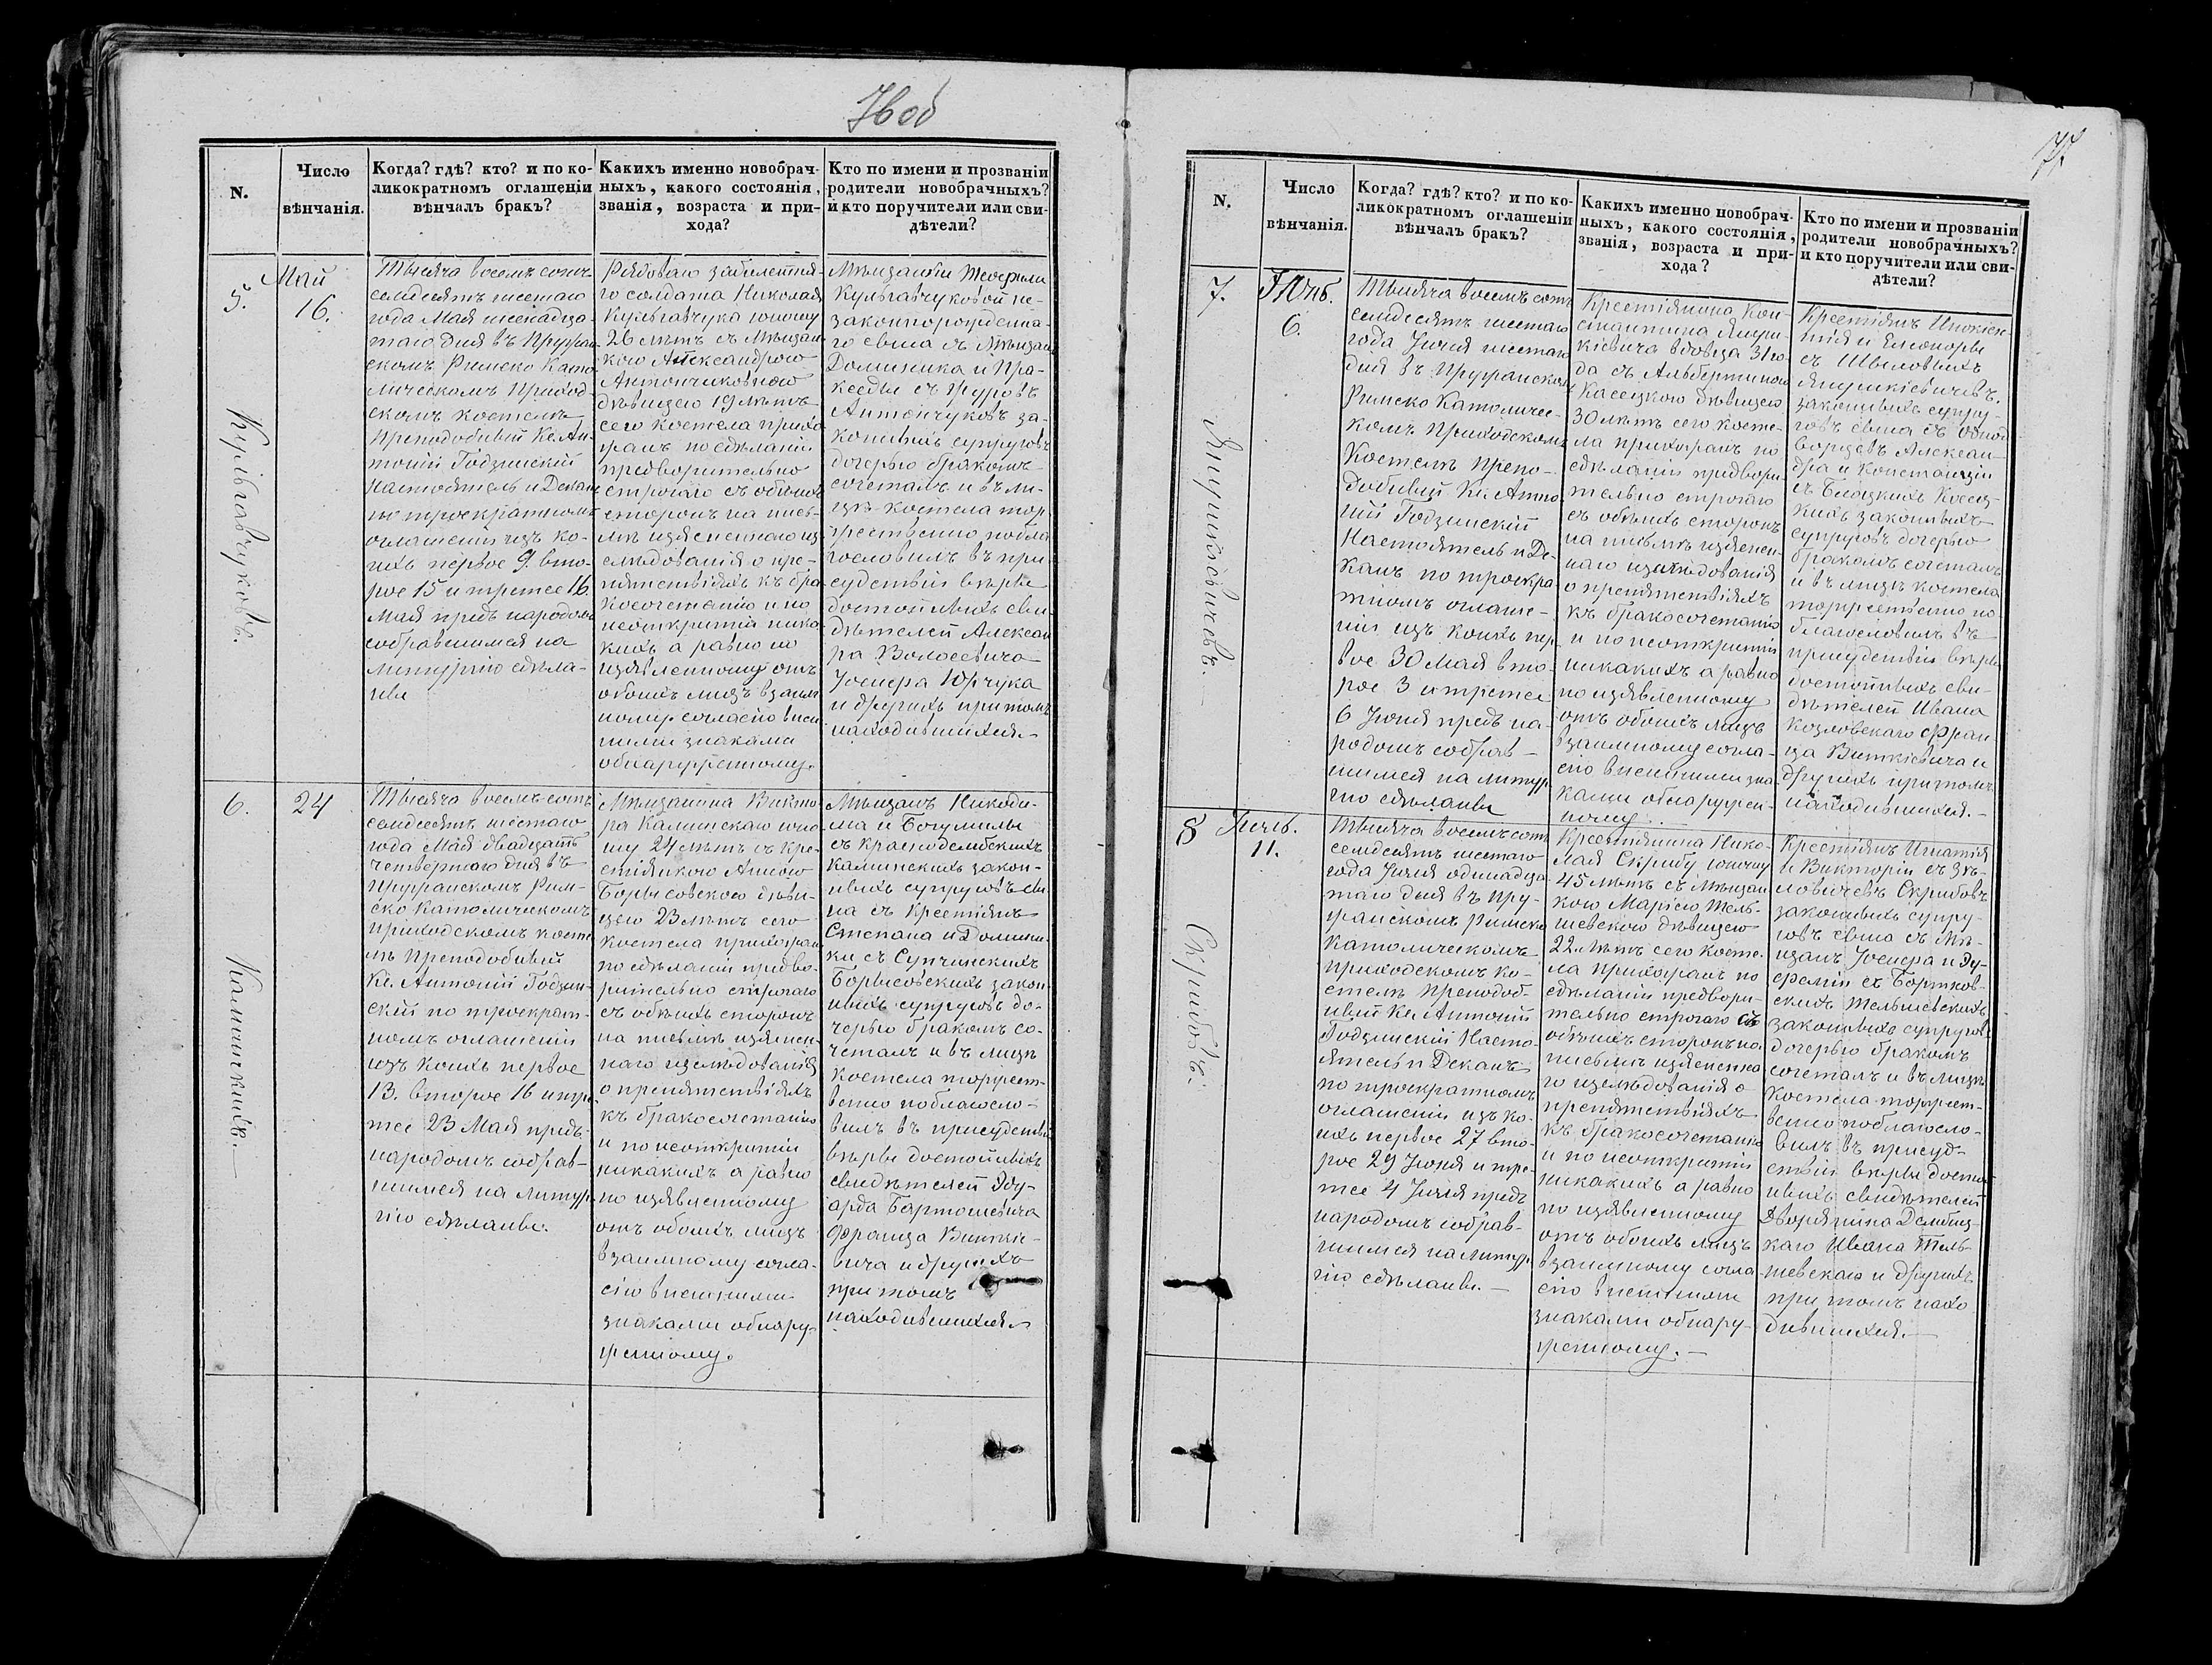 76об
N.
Число
вѣнчанія.
Когда? гдѣ? кто? и по ко-
ликократномъ оглашеніи
вѣнчалъ бракъ?
Какихъ именно новобрач-
ныхъ, какого состоянія,
званія, возраста и при-
хода?
Кто по имени и прозваніи
родители новобрачныхъ?
и кто поручители или сви-
дѣтели?
5.
Май
16.
Кульгавчуковъ.
Тысяча восемь сотъ
семдесятъ шестаго
года Мая шеснадца-
таго дня въ Пружан-
скомъ Римско Като-
лическомъ Приход-
скомъ костелѣ
Преподобный Кс. Ан-
тоній Годзинскій
Настоятель и Деканъ
по троекратномъ
оглашеніи изъ ко-
ихъ первое 9. вто-
рое 15 и третее 16.
Мая предъ народомъ
собравшимся на
литургію сдѣла-
ны
Рядоваго забилетня-
го солдата Николая
Кульгавчука юношу
26 лѣтъ съ Мѣщан-
кою Александрою
Антончиковною
дѣвицею 19 лѣтъ
сего костела прихо-
жанъ по сдѣланіи
предворительно
строгаго съ обѣихъ
сторонъ на пись-
мѣ изясненнаго из-
слѣдованія о пре-
пятствіяхъ къ бра-
косочетанію и по
неоткрытіи ника-
кихъ а равно по
изявленному отъ
обоихъ лицъ взаим-
ному согласію внеш-
ними знаками
обнаруженному.
Мѣщанки Теофили
Кульгавчуковой не-
законнорожденна-
го сына съ Мѣщанъ
Доминика и Пра-
кседы съ Журовъ
Антончуковъ за-
конныхъ супруговъ
дочерью бракомъ
сочеталъ и въ ли-
цѣ костела тор-
жественно побла-
гословилъ въ при-
судствіи вѣры
достойныхъ сви-
дѣтелей Алексан-
ра Волосевича
Іосифа Юрчука
и другихъ притомъ
находившихся.
6.
24
Калинскихъ.
Тысяча восемь сотъ
семдесятъ шестаго
года Мая двадцать
четвертаго дня въ
Пружанскомъ Рим-
ско Католическомъ
приходскомъ косте-
лѣ Преподобный
Кс. Антоній Годзин-
скій по троекрат-
номъ оглашеніи
изъ коихъ первое
13. второе 16 и тре-
тее 23 Мая предъ
народомъ собрав-
шимся на литур-
гію сдѣланы.
Мѣщанина Викто-
ра Калинскаго юно-
шу 24 лѣтъ съ кре-
стіянкою Анною
Борысовскою дѣви-
цею 23 лѣтъ сего
костела прихожан
по сдѣланіи предво-
рительно строгаго
съ обѣихъ сторонъ
на письмѣ изяснен-
наго изслѣдованія
о препятствіяхъ
къ бракосочетанію
и по неоткрытіи
никакихъ а равно
по изявленному
отъ обоихъ лицъ
взаимному согла-
сію внешними
знаками обнару-
женному.
Мѣщанъ Никоди-
ма и Богумилы
съ Краснодембскихъ
Калинскихъ закон-
ныхъ супруговъ сы-
на съ Крестіянъ
Степана и Домини-
ки съ Супчинскихъ
Борысовскихъ закон-
ныхъ супруговъ до-
черью бракомъ со-
четалъ и въ лицѣ
костела торжест-
венно поблагосло-
вилъ въ присудствіи
вѣры достойныхъ
свидѣтелей Эду-
арда Бартошевича
Франца Виткіе-
вича и другихъ
притомъ
находившихся.
77
N.
Число
вѣнчанія.
Когда? гдѣ? кто? и по ко-
ликократномъ оглашеніи
вѣнчалъ бракъ?
Какихъ именно новобрач-
ныхъ, какого состоянія,
званія, возраста и при-
хода?
Кто по имени и прозваніи
родители новобрачныхъ?
и кто поручители или сви-
дѣтели?
7.
Іюнь.
6.
Янушкіевичевъ.
Тысяча восемь сотъ
семдесятъ шестаго
года Іюня шестаго
дня въ Пружанскомъ
Римско Католичес-
комъ Приходскомъ
Костелѣ Препо-
добный Кс. Анто-
ній Годзинскій
Настоятель и Де-
канъ по троекра-
тномъ оглаше-
ніи изъ коихъ пер-
вое 30 Мая вто-
рое 3 и третее
6 Іюня предъ на-
родомъ собрав-
шимся на литур-
гію сдѣланы
Крестіянина Кон-
стантина Януш-
кіевича вдовца 31 го-
да съ Альбертиною
Касецкою дѣвицею
30 лѣтъ сего косте-
ла прихожанъ по
сдѣланіи предвори-
тельно строгаго
съ обѣихъ сторонъ
на письмѣ изяснен-
наго изслѣдованія
о препятствіяхъ
къ бракосочетанію
и по неоткрытіи
никакихъ а равно
по изявленному
отъ обоихъ лицъ
взаимному согла-
сію внешними зна-
ками обнаружен-
ному.
Крестіянъ Инокієн-
тія и Елеоноры
съ Шыловыхъ
Янушкіевичевъ.
законныхъ супру-
говъ сына съ однод-
ворцевъ Алексан-
дра и Констанціи
съ Блоцкихъ Косец-
кихъ законныхъ
супруговъ дочерью
бракомъ сочеталъ
и въ лицѣ костела
торжественно по-
благословилъ въ
присудствіи вѣры
достойныхъ сви-
дѣтелей Ивана
Козловскаго Фран-
ца Виткіевича и
другихъ притомъ
находившихся.
8
Іюль.
11.
Скрибовъ.
Тысяча восемь сотъ
семдесятъ шестаго
года Іюля одинадца-
таго дня въ Пру-
жанскомъ Римско
Католическомъ
приходскомъ ко-
стелѣ Преподоб-
ный Кс. Антоній
Годзинскій Насто-
ятель и Деканъ
по троекратномъ
оглашеніи изъ ко-
ихъ первое 27 вто-
рое 29 Іюня и тре-
тее 4 Іюля предъ
народомъ собрав-
шимся на литур-
гію сдѣланы.
Крестіянина Нико-
лая Скрибу юношу
45 лѣтъ съ Мѣщан-
кою Маріею Тель-
шевскою дѣвицею
22. лѣтъ сего косте-
ла прихожанъ по
сдѣланіи предвори-
тельно строгаго съ
обѣихъ сторонъ на
письмѣ изясненна-
го изслѣдованія о
препятствіяхъ
къ бракосочетанію
и по неоткрытіи
никакихъ а равно
по изявленному
отъ обоихъ лицъ
взаимному согла-
сію внешними
знаками обнару-
женному.
Крестіянъ Игнатія
и Викторіи съ Зѣ-
ловичевъ Скрибовъ
законныхъ супру-
говъ сына съ Мѣ-
щанъ Іосифа и Эу-
феміи съ Бортков-
скихъ Тельшевскихъ
законныхъ супруговъ
дочерью бракомъ
сочеталъ и въ лицѣ
Костела торжест-
венно поблагосло-
вилъ въ присуд-
ствіи вѣры достой-
ныхъ свидѣтелей
Дворянина Дембиц-
каго Ивана Тель-
шевскаго и другихъ
при томъ нахо-
дившихся.